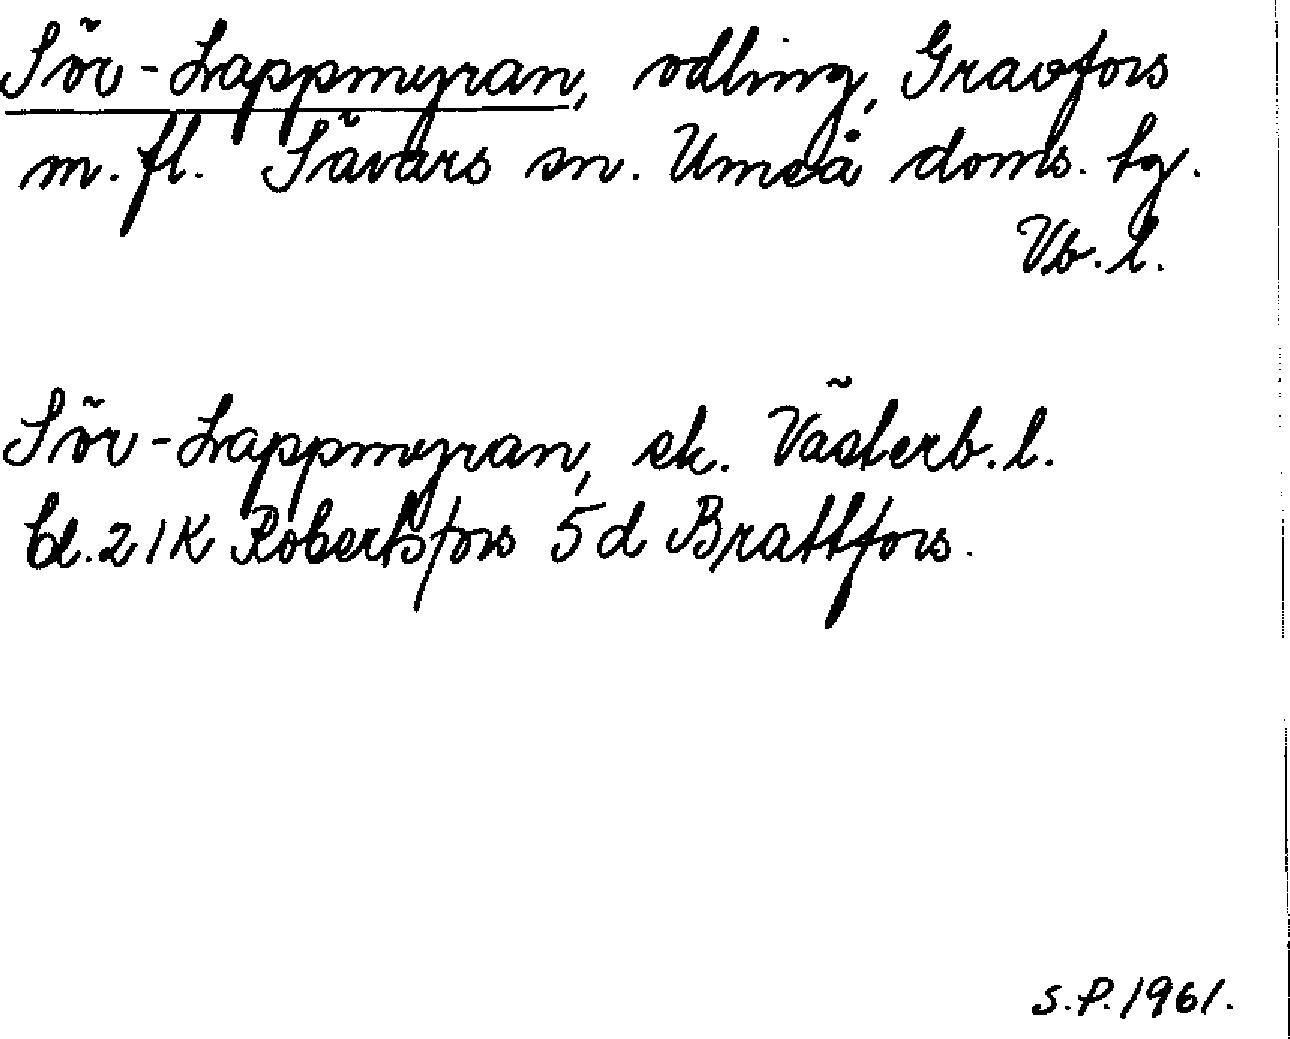 Sör-Lappmyran, odling, Gravfors
m.fl. Sävars sn. Umeå doms. tg.
Vb.l.
Sör-Lappmyran, ek. Västerb.l.
bl.21K Robertsfors 5d Brattfors.
S.P.1961.